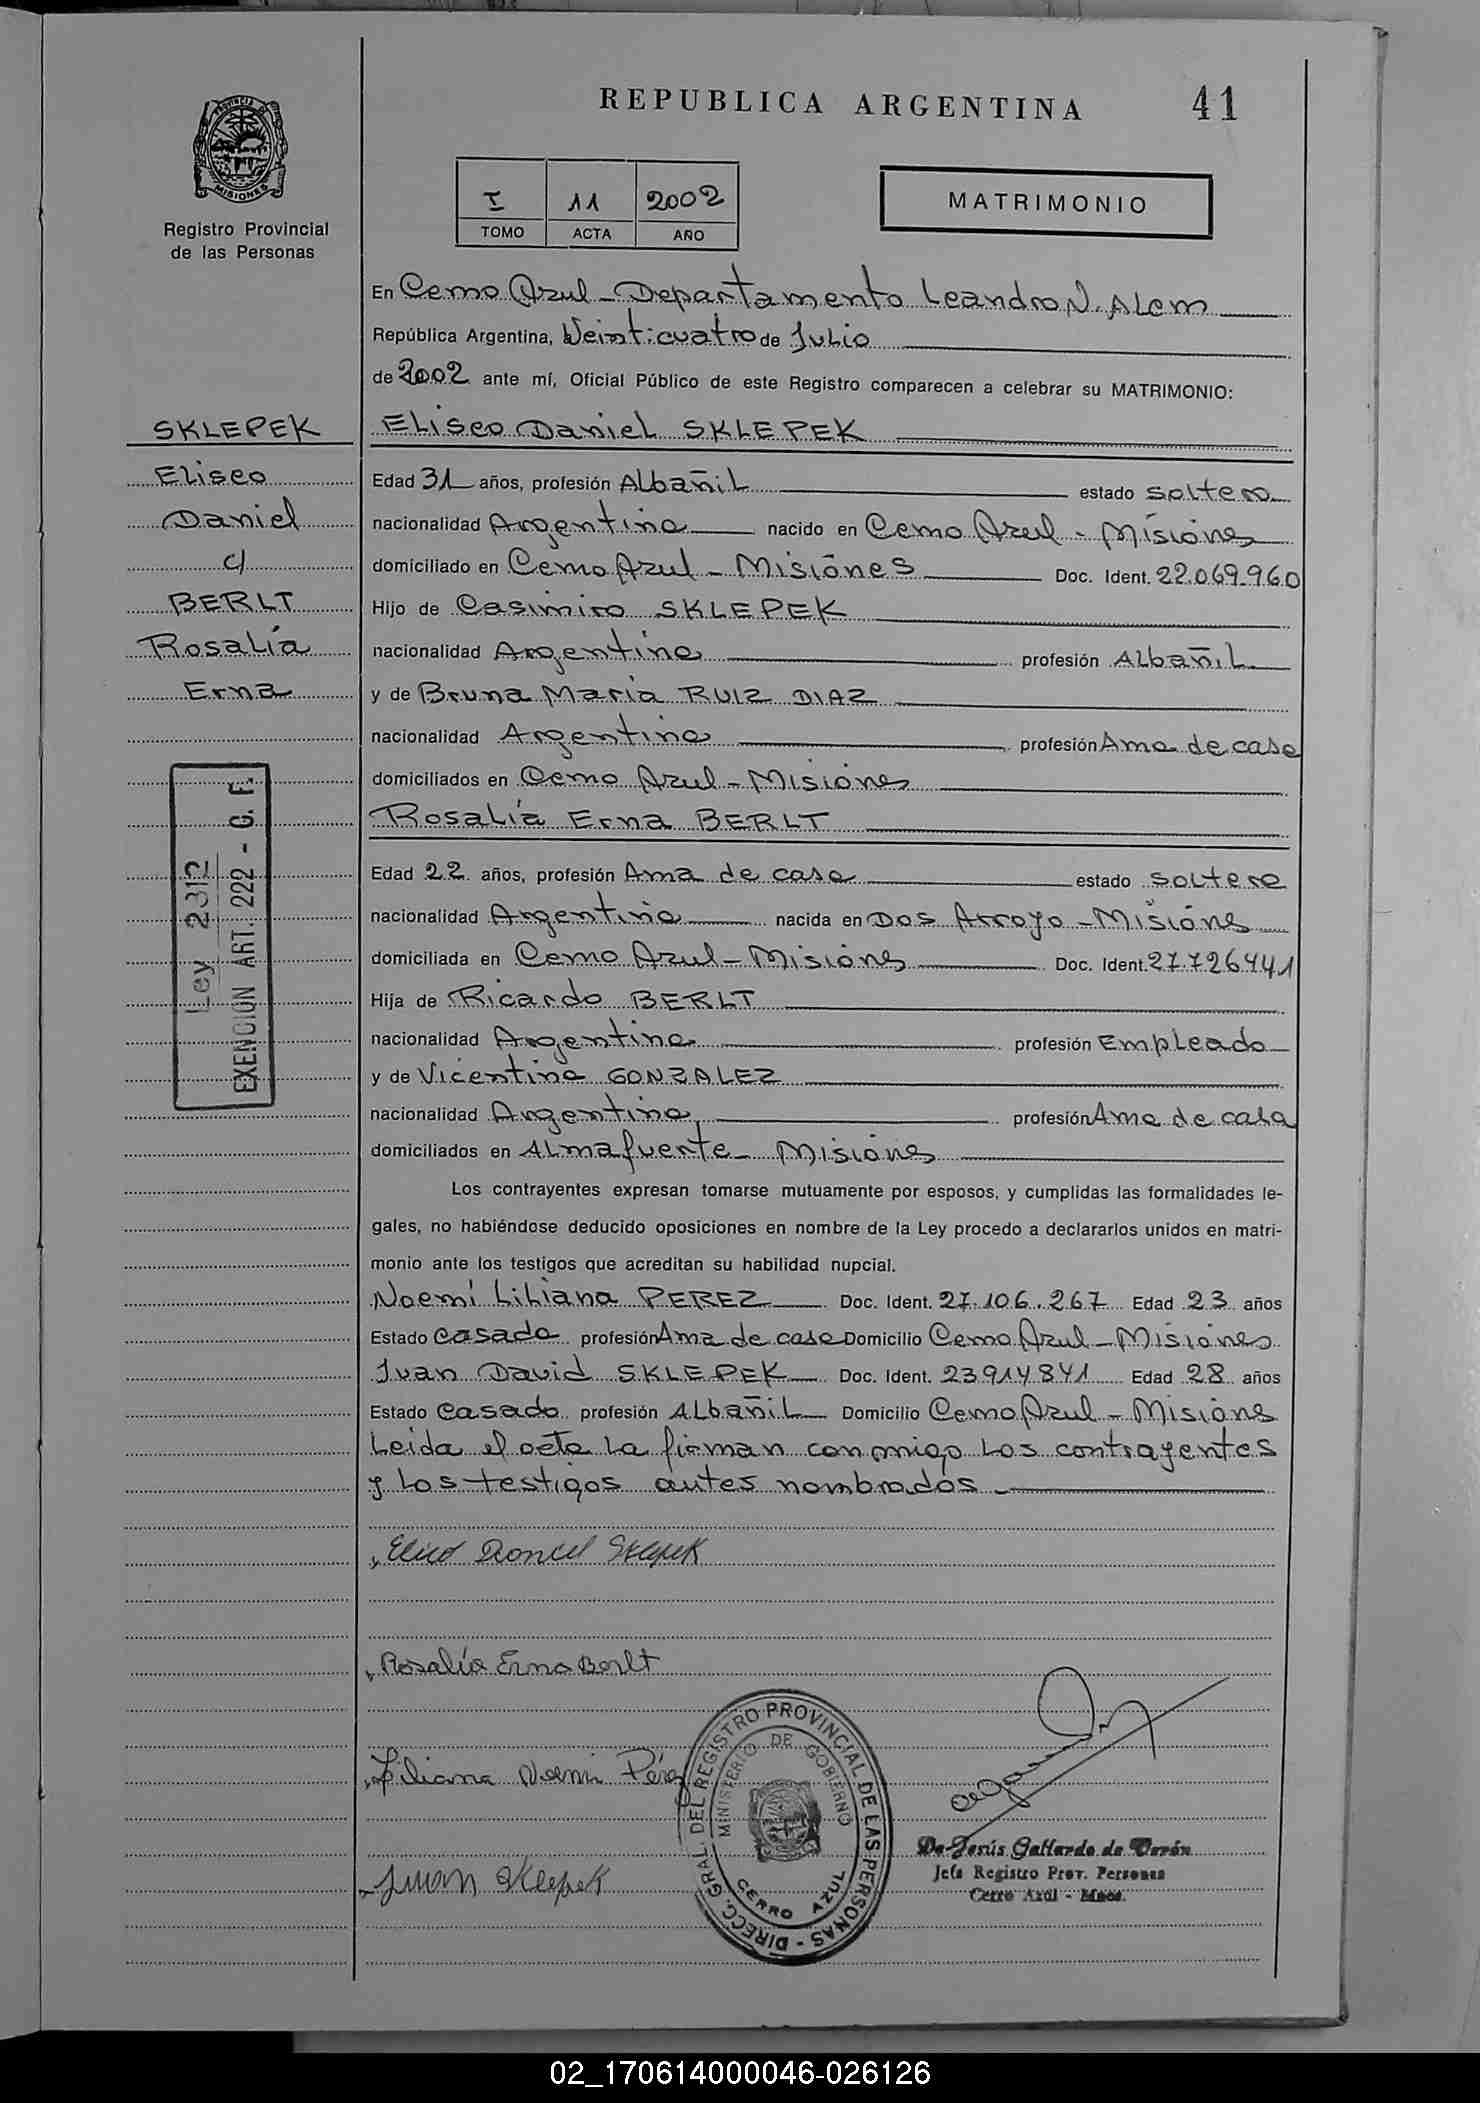 REPUBLICA ARGENTINA 41
PROVINCIA DE
MISIONES
Registro Provincial
de las Personas
I 11 2002
TOMO ACTA AÑO
MATRIMONIO
En Cerro Azul - Departamento Leandro N. Alem
República Argentina, Veinticuatro de Julio
de 2002 ante mí, Oficial Público de este Registro comparecen a celebrar su MATRIMONIO:
SKLEPEK
Eliseo
Daniel
c/
BERLT
Rosalía
Erna
Ley 2312
EXENCION ART. 222 - C. F.
Eliseo Daniel SKLEPEK
Edad 31 años, profesión Albañil estado soltero
nacionalidad Argentina nacido en Cerro Azul - Misiones
domiciliado en Cerro Azul - Misiones Doc. Ident. 22.069.960
Hijo de Casimiro SKLEPEK
nacionalidad Argentina profesión Albañil
y de Bruna María RUIZ DIAZ
nacionalidad Argentina profesión Ama de casa
domiciliados en Cerro Azul - Misiones
Rosalía Erna BERLT
Edad 22 años, profesión Ama de casa estado soltera
nacionalidad Argentina nacida en Dos Arroyo - Misiones
domiciliada en Cerro Azul - Misiones Doc. Ident. 27.726441
Hija de Ricardo BERLT
nacionalidad Argentina profesión Empleado
y de Vicentina GONZALEZ
nacionalidad Argentina profesión Ama de casa
domiciliados en Almafuerte - Misiones
Los contrayentes expresan tomarse mutuamente por esposos, y cumplidas las formalidades le-
gales, no habiéndose deducido oposiciones en nombre de la Ley procedo a declararlos unidos en matri-
monio ante los testigos que acreditan su habilidad nupcial.
Noemí Liliana PEREZ Doc. Ident. 27.106.267 Edad 23 años
Estado casada profesión Ama de casa Domicilio Cerro Azul - Misiones
Juan David SKLEPEK Doc. Ident. 23914841 Edad 28 años
Estado casado profesión Albañil Domicilio Cerro Azul - Misiones
Leida el acta la firman conmigo los contrayentes
y los testigos antes nombrados
Eliseo Daniel Sklepek
Rosalía Erna Berlt
Liliana Noemi Pérez
Juan Sklepek
DIRECC. GRAL. DEL REGISTRO PROVINCIAL DE LAS PERSONAS -
MINISTERIO DE GOBIERNO
CERRO AZUL
De Jesús Gallardo de Verón
Jefa Registro Prov. Personas
Cerro Azul - Mnes.
02_170614000046-026126